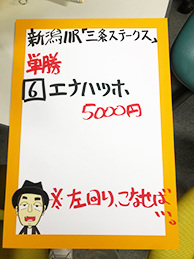 新潟11R「三条ステークス」
単勝
6 エナハツホ
5000円
※左回り、こなせば…。